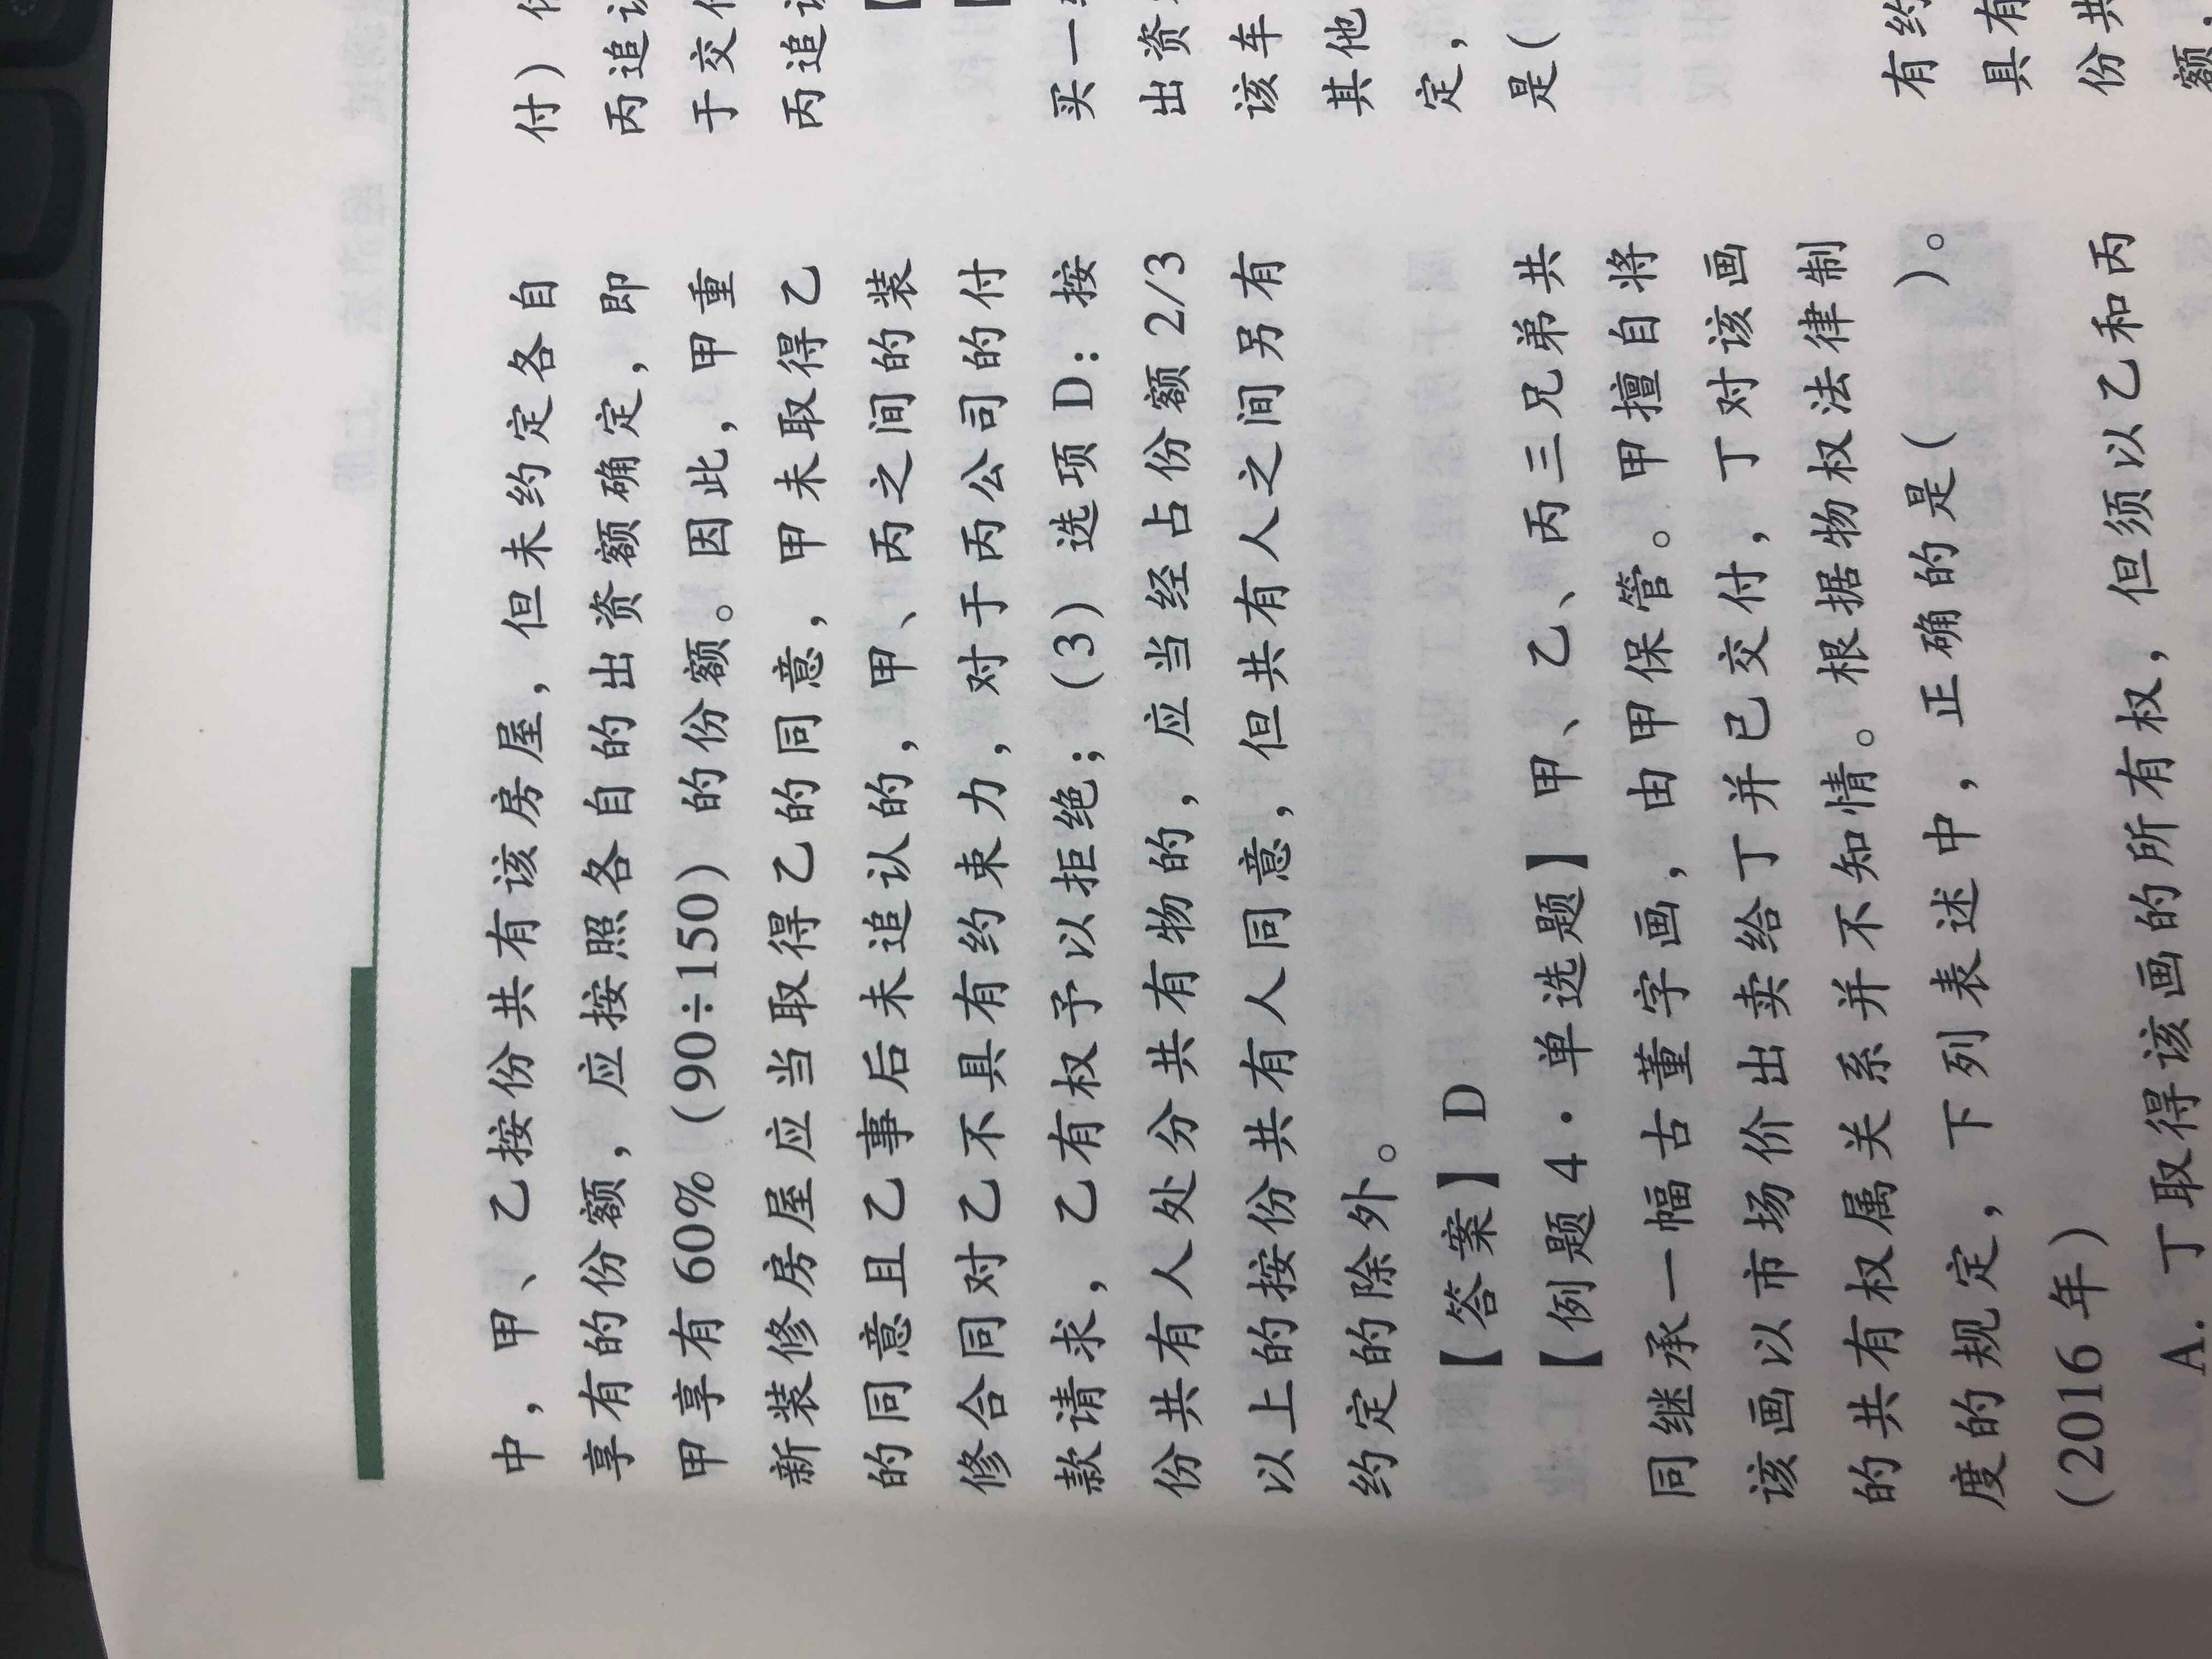 中，甲、乙按份共有该房屋，但未约定各自
享有的份额，应按照各自的出资额确定，即
甲享有60%（90÷150）的份额。因此，甲重
新装修房屋应当取得乙的同意，甲未取得乙
的同意且乙事后未追认的，甲、丙之间的装
修合同对乙不具有约束力，对于丙公司的付
款请求，乙有权予以拒绝；（3）选项D：按
份共有人处分共有物的，应当经占份额2/3
以上的按份共有人同意，但共有人之间另有
约定的除外。
【答案】 D
【例题4·单选题】甲、乙、丙三兄弟共
同继承一幅古董字画，由甲保管。甲擅自将
该画以市场价出卖给丁并已交付，丁对该画
的共有权属关系并不知情。根据物权法律制
度的规定，下列表述中，正确的是（ ）。
（2016年）
A. 丁取得该画的所有权，但须以乙和丙
付）
丙追
于交
丙追
【
【
买一
出资
该车
其他
定，
是（
有约
具有
份共
额.